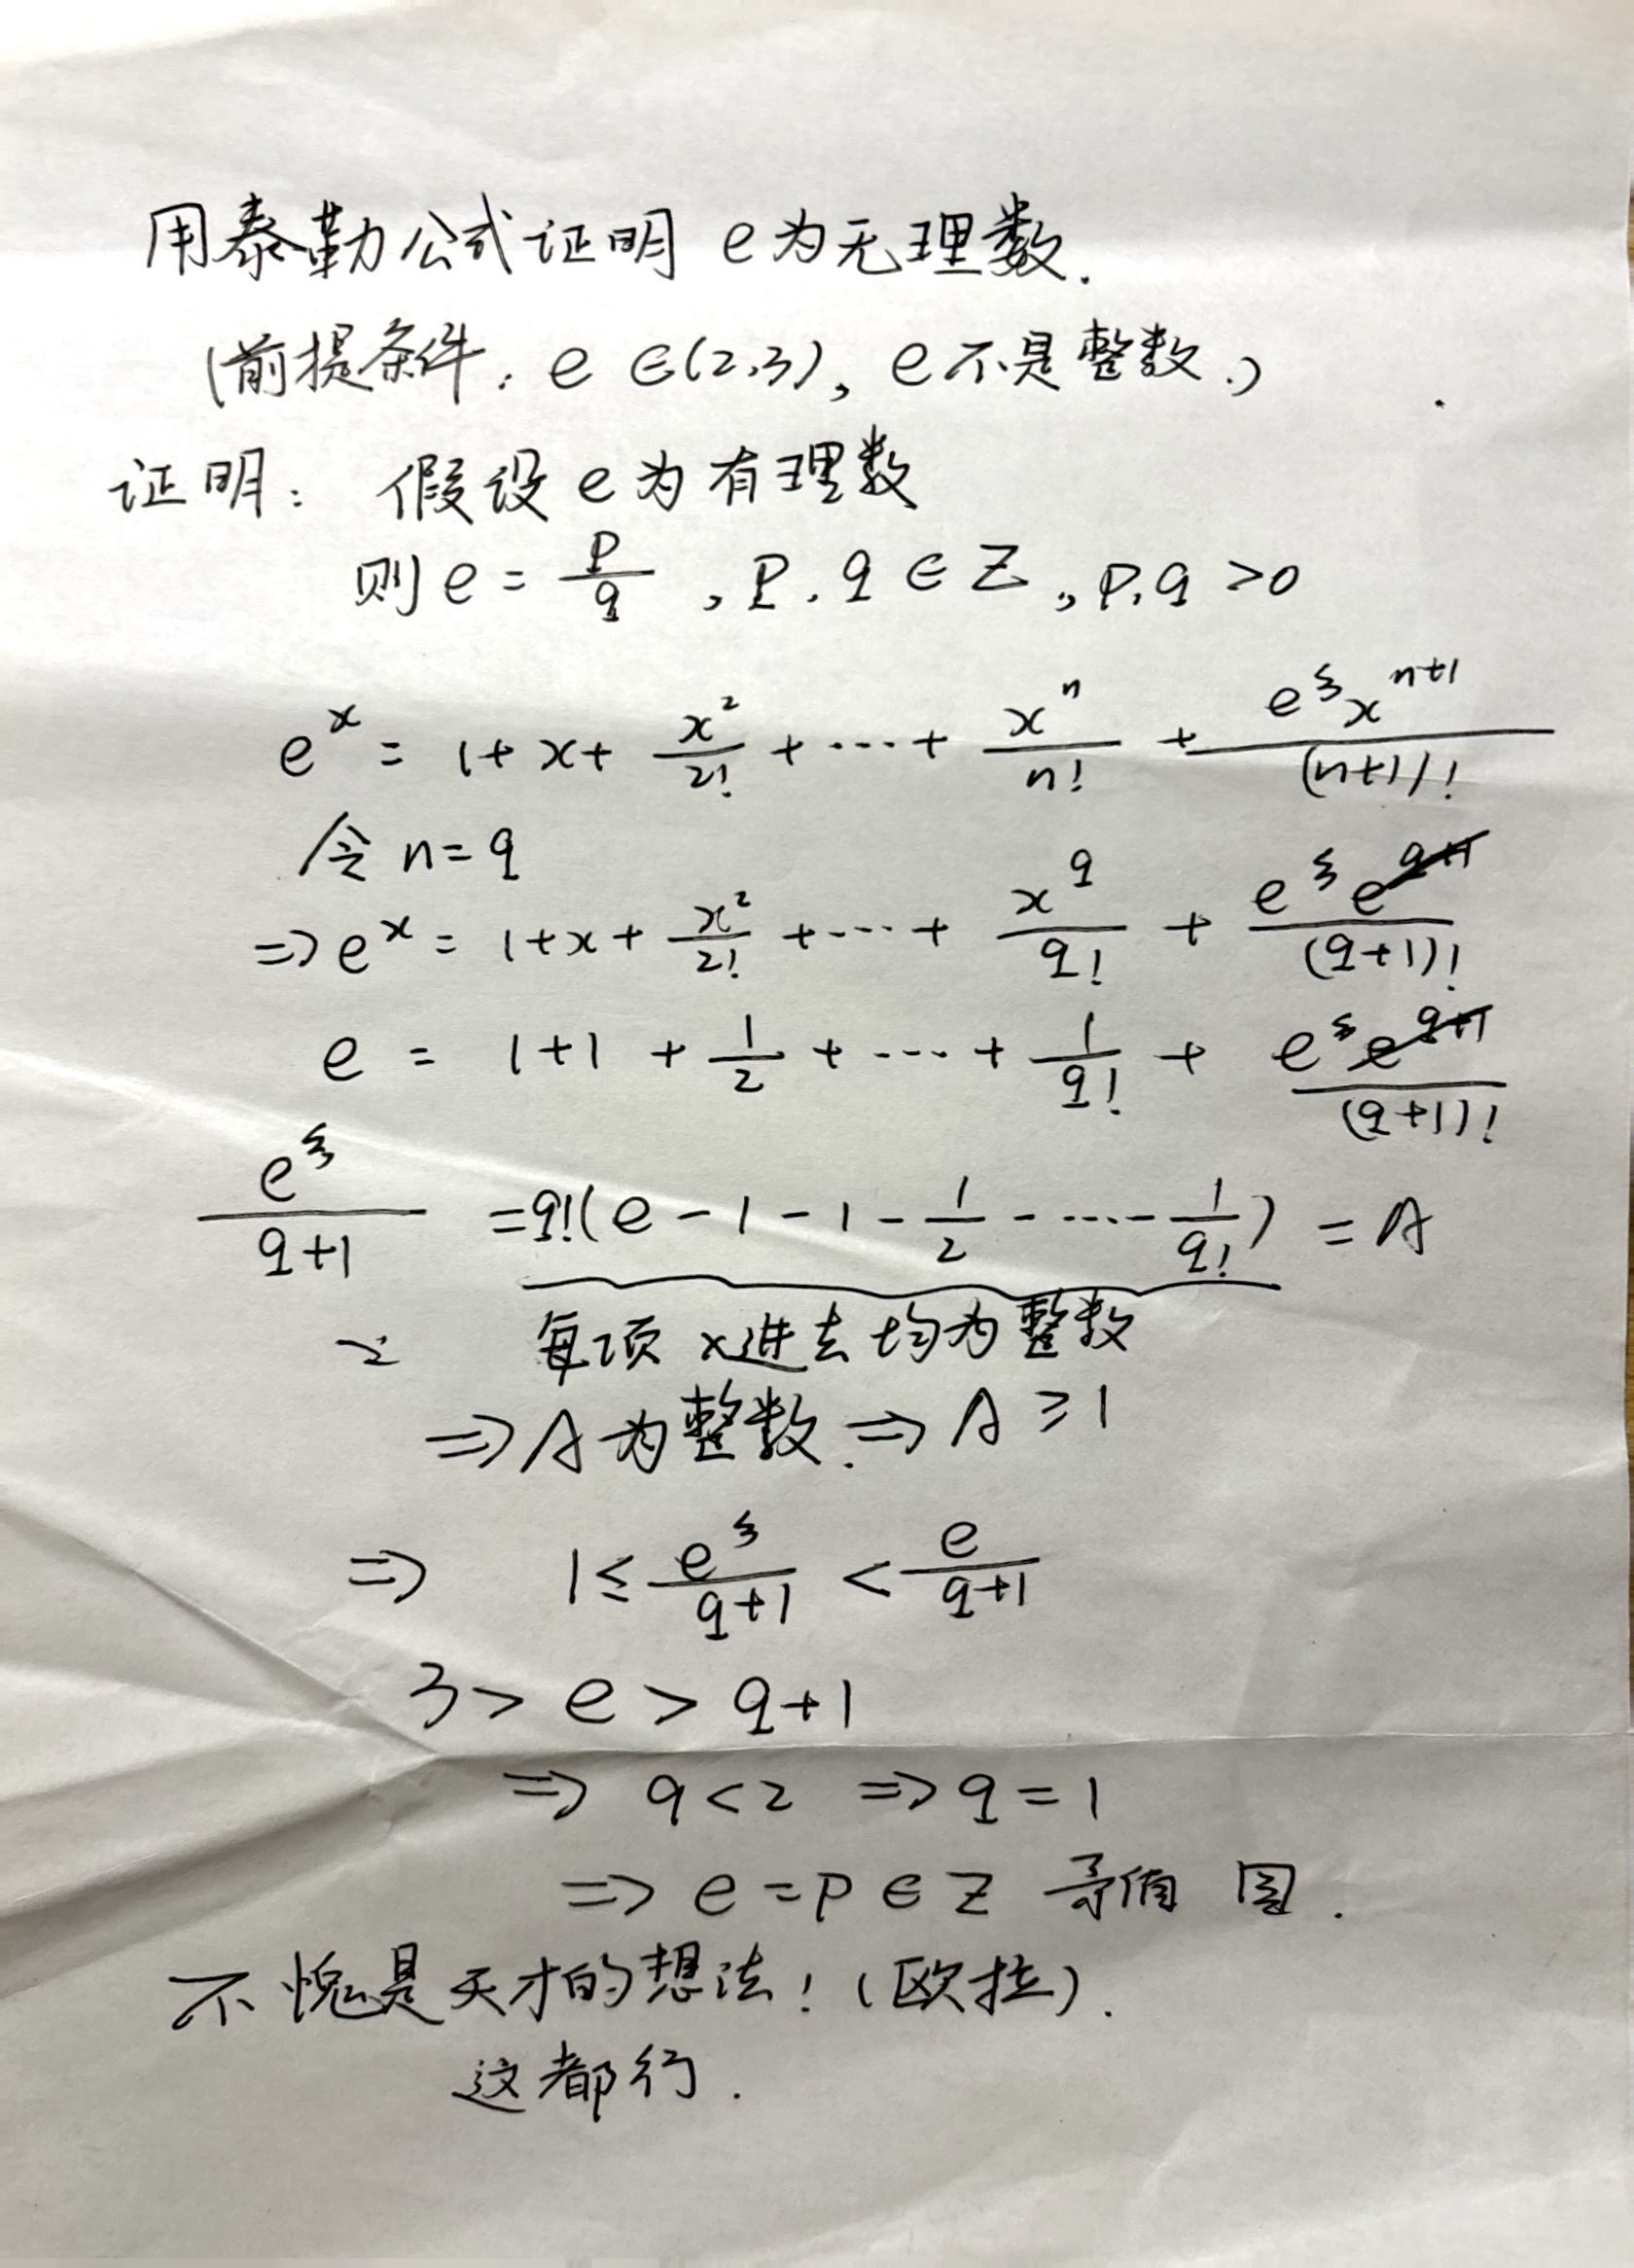 用泰勒公式证明 e为无理数.
(前提条件: e ∈(2,3), e不是整数.)
证明: 假设e为有理数
则 e = p/q , p, q ∈ Z, p, q > 0
e^x = 1 + x + x^2/2! + ⋯ + x^n/n! + e^ξ x^(n+1)/(n+1)!
令 n=q
⇒ e^x = 1+x+ x^2/2! + ⋯ + x^q/q! + e^ξ e^(q+1)/(q+1)!
e = 1+1 + 1/2 + ⋯ + 1/q! + e^ξ e^(q+1)/(q+1)!
e^ξ/(q+1) = q!(e - 1 - 1 - 1/2 - ⋯ - 1/q!) = A
∵ 每项 ×进去均为整数
⇒ A为整数. ⇒ A ≥ 1
⇒ 1 ≤ e^ξ/(q+1) < e/(q+1)
3 > e > q+1
⇒ q<2 ⇒ q=1
⇒ e = p ∈ Z 矛盾
不愧是天才的想法! (欧拉).
这都行.